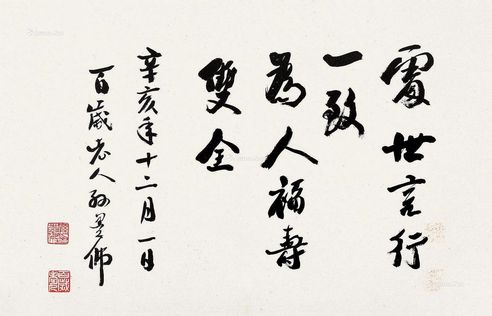 處世言行
一致
為人福壽
雙全
辛亥年十二月一日
百歲老人孙墨佛